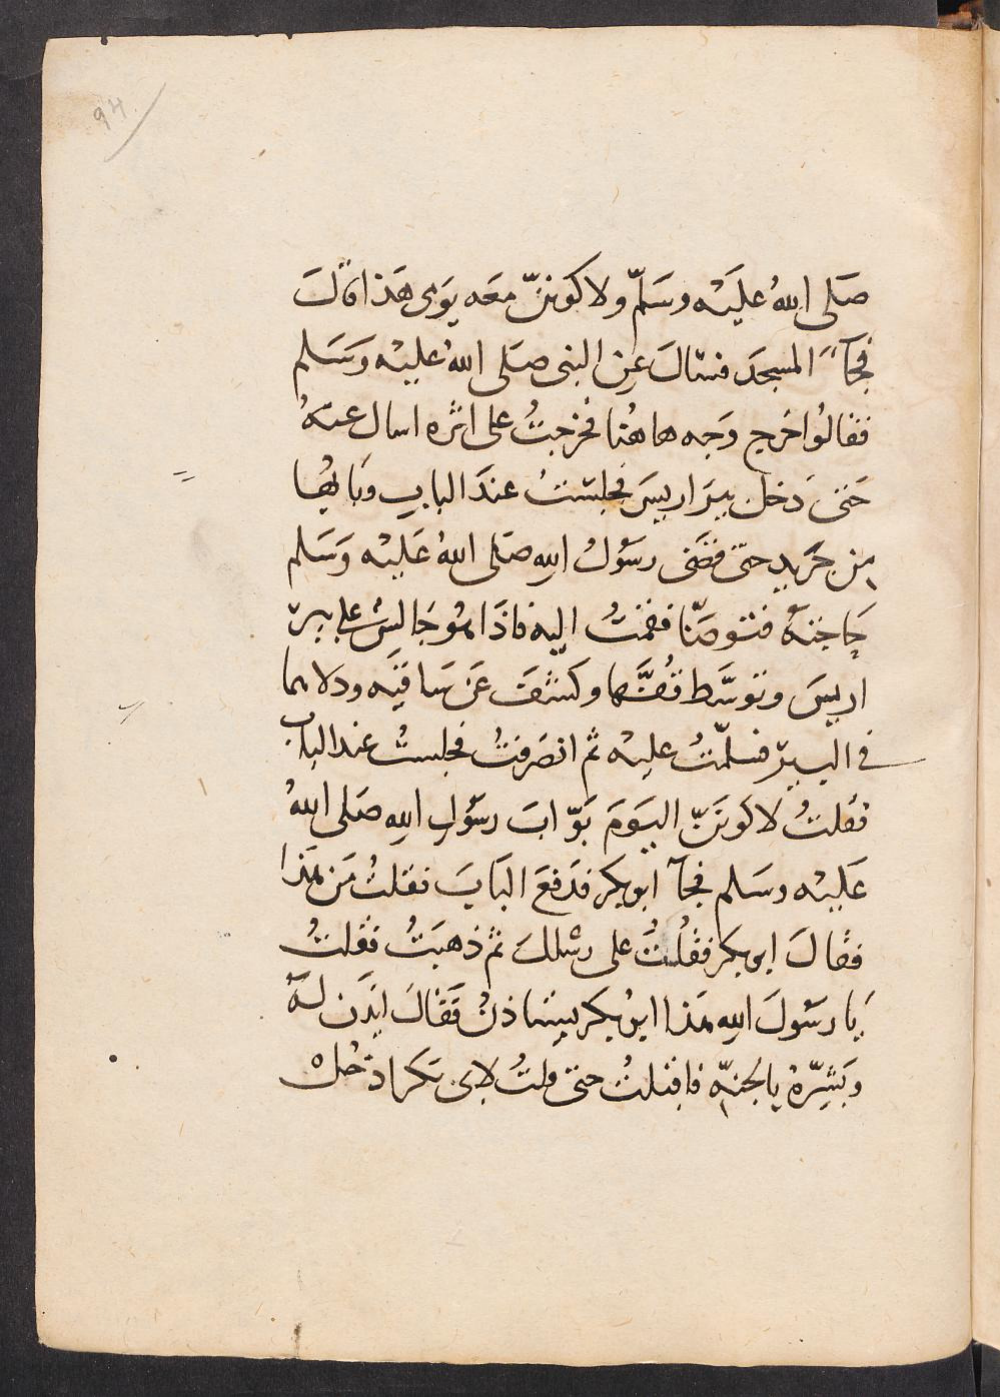 94
صَلى اللهُ عليَه وسَلّم ولاكوننّ معَه يَومى هَذا قالَ
فجآءَ المسجدَ فسالَ عِن النبى صَلى اللهُ عليْه وَسَلم
فقالُوا خرج وَجه هاهُنا فخرجتُ على اثره اسال عنهُ
حَتى دَخل بيرَ اريسَ فجلسْتُ عندَ البابِ وبَابُها
من جَريد حتى قضَى رسَوُلُ اللهِ صَلى اللهُ عَليْه وَسَلم
حَاجَتهُ فتوضّا فقمْتُ اليه فاذَا هُو جَالسٌ على بير
اريسَ وتوسَّط قُفّها وكشفَ عَن سَاقَيَه ودلاهما
فى البير فسلّمتُ عليْه ثم انصَرفتُ فجلستُ عند الباب
فقلتُ لاكونَنّ اليَومَ بَوّابَ رسَوُلِ اللهِ صَلى اللهُ
عَليْه وسَلم فجآ ابوبكر فدَفعَ البَابَ فقلتُ مَن هَذا
فقالَ ابوبكر فقُلْتُ على رسْلكَ ثم ذهبَتُ فقلتُ
يَا رسَولَ اللهِ هَذا ابوُبكر يستاذنُ فقَالَ ايذَن لهُ
وبَشِّرهُ بالجنّه فاقبلتُ حتى قلتُ لابى بَكر ادخُلْ